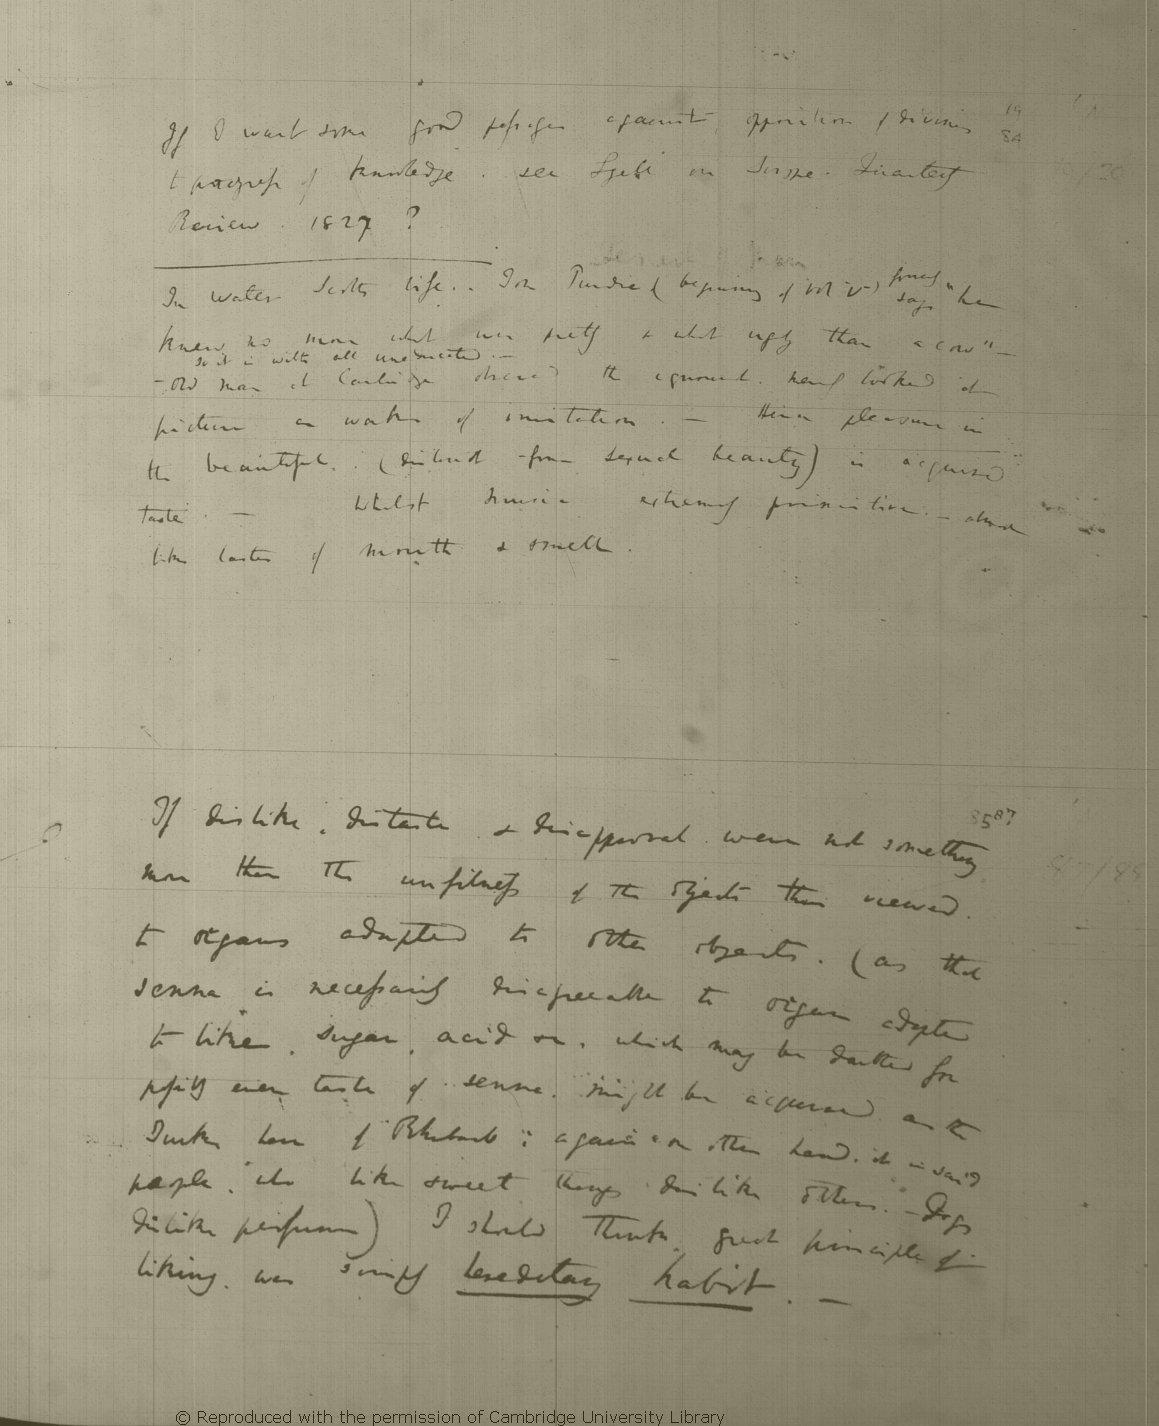 If I want some good passages against opposition of divines
to progress of knowledge. see Lyell on Scrope. Quarterly
Review. 1827?
19
84
In Water Scotts life.. Tom Purdie (beginning of Vol V) says "he
knew no more what was pretty & what ugly than a cow" —
so it is with all uneducated. —
— old man at Cambridge observed the ignorant. merely looked at
picture as works of imitation. — Hence pleasure in
the beautiful. (distinct from sexual beauty) is acquired
taste. — Whilst music extremely primitive. — almost
like tastes of mouth & smell.
8587
If dislike, distaste & disapproval were not something
more than the unfitness of the objects then viewed.
to organs adapted to other objects. (as that
senna is necessarily disagreeable to organ adapted
to like, sugar, acid &c, which may be doubted for
possibly even taste of senna. might be acquired as the
Turks have of Rhubarb: again on other hand. it is said
people, who like sweet things dislike others. — Dogs
dislike perfumes) I should think, great principle of
liking, was simply hereditary habit. —
© Reproduced with the permission of Cambridge University Library